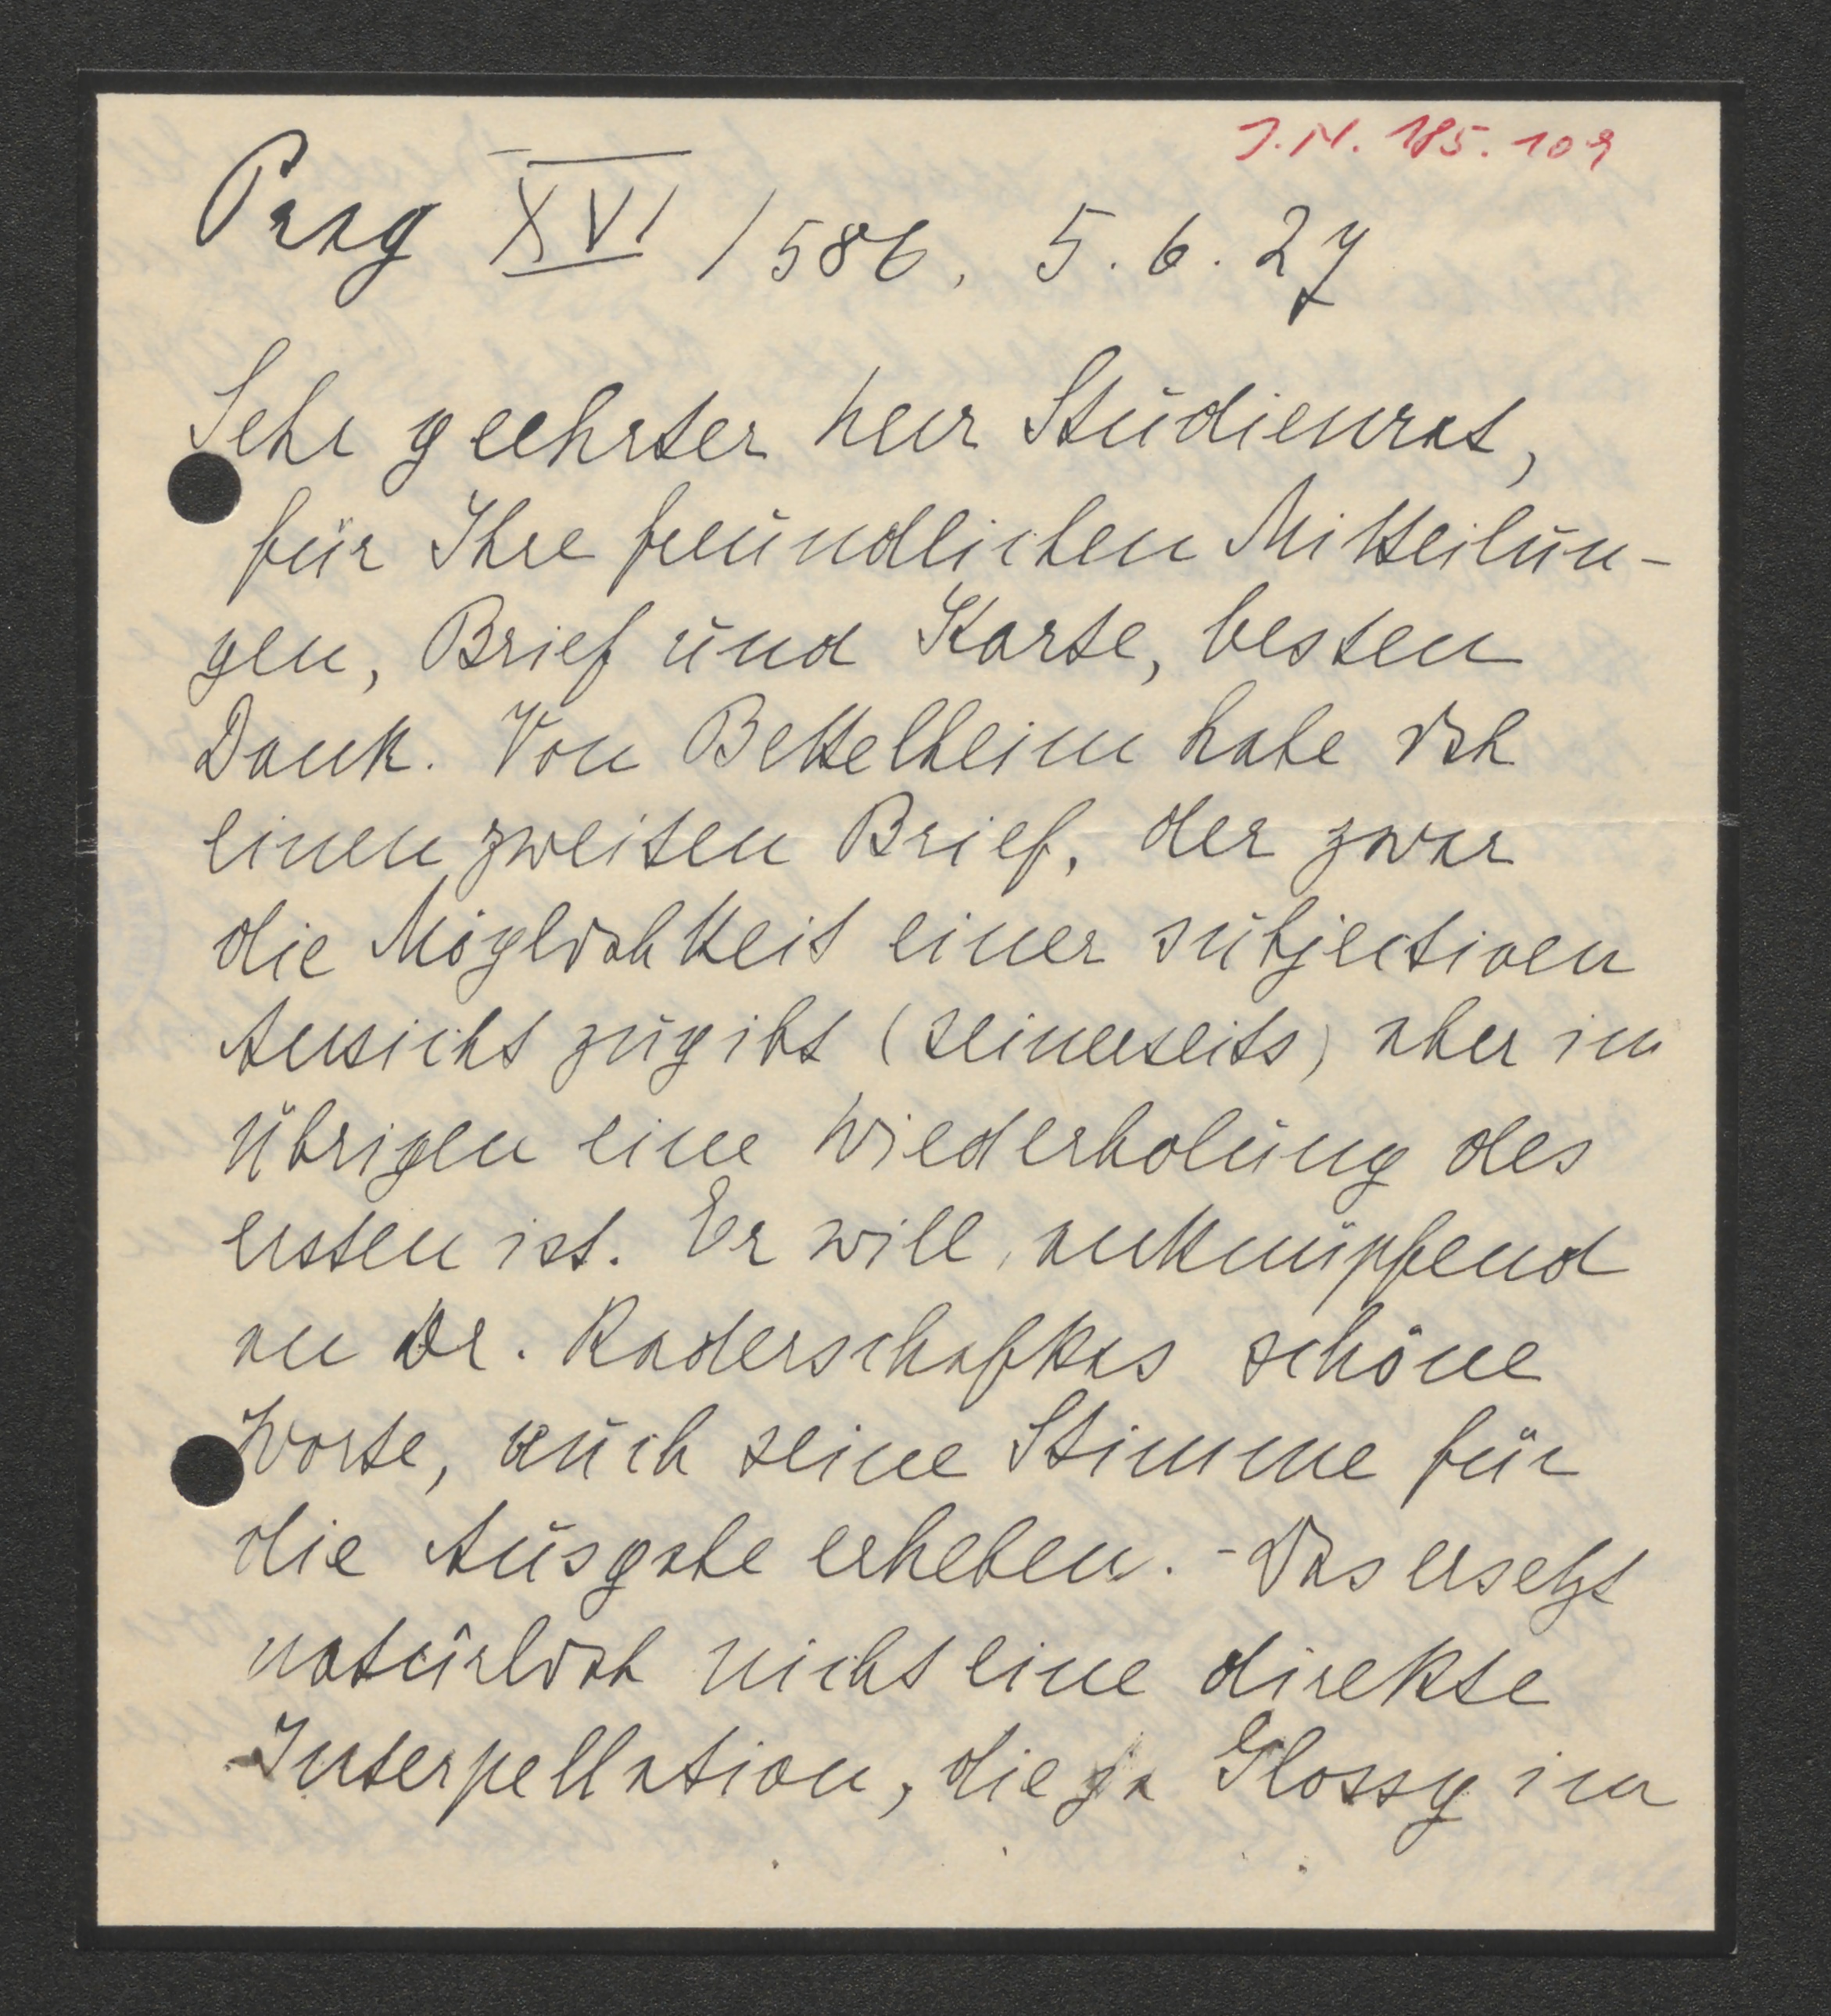 J.N. 185.109
Prag XVI / 586, 5.6.27
Sehr geehrter Herr Studienrat,
für Ihre freundlichen Mitteilun-
gen, Brief und Karte, besten
Dank. Von Bettelheim habe ich
einen zweiten Brief, der zwar
die Möglichkeit einer subjectiven
Ansicht zugibt (seinerseits) aber im
übrigen eine Wiederholung des
ersten ist. Er will, anknüpfend
an Dr. Kaderschafkas schöne
Worte, auch seine Stimme für
die Ausgabe erheben. - Das ersetzt
natürlich nicht eine direkte
Interpellation, die ja Glossy im